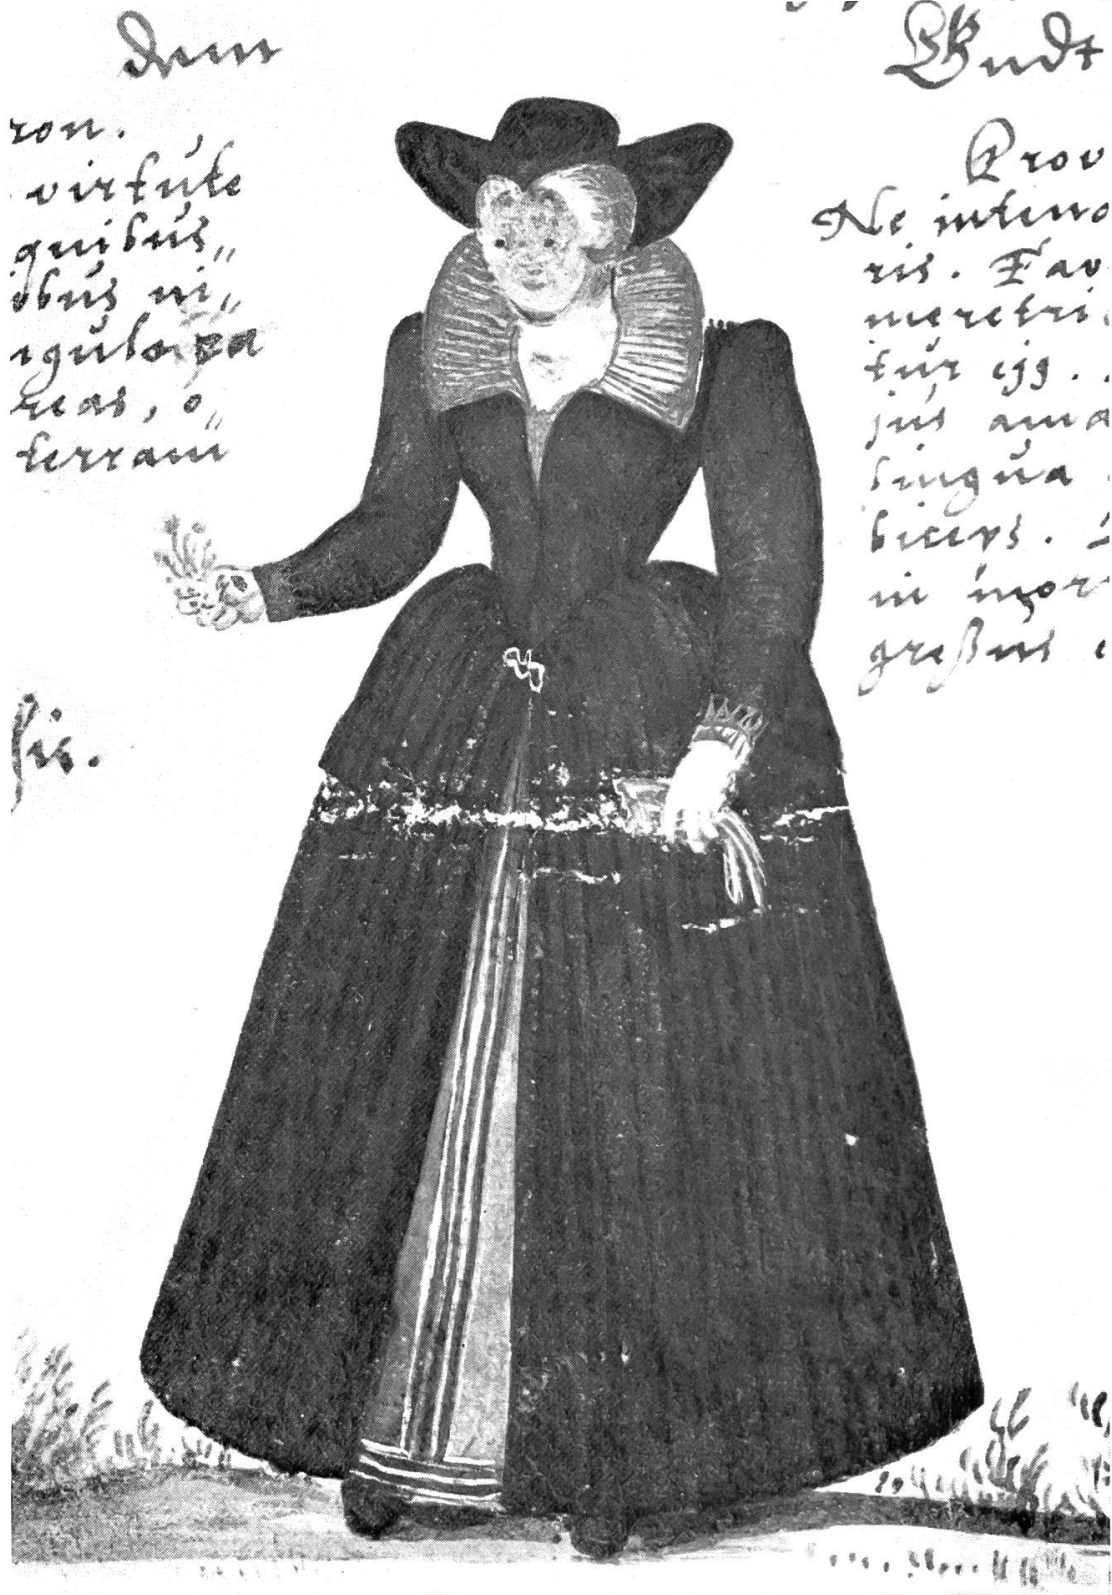 dem
ron.
virtute
quibus„
ibus ni„
ngulo pa
reas, o„
terram
sis.
Gudt
Prov
Ne inteno
ris. Fav
meretri
tur egg.
jus ama
lingua
biceps.
in mor
greßus